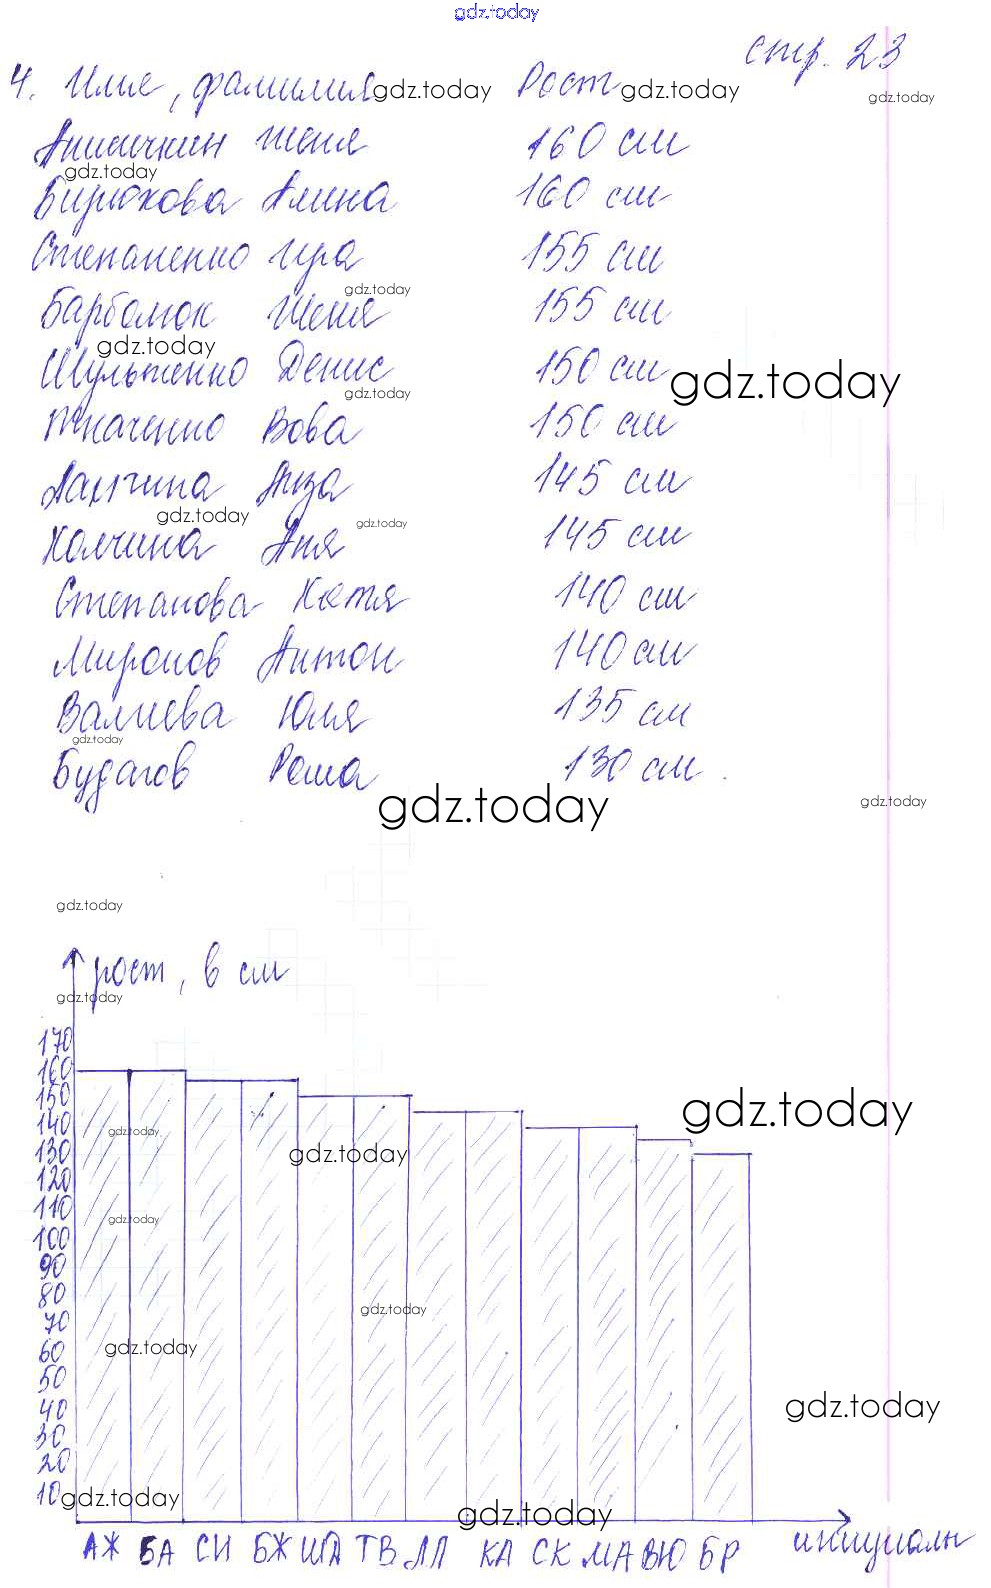 gdz.today
стр. 23
4. Имя, фамилия gdz.today Рост gdz.today
gdz.today
Анисичкин Женя 160 см
gdz.today
Бирюкова Алина 160 см
Степаненко Ира 155 см
gdz.today
Барболюк Женя 155 см
gdz.today
Шульженко Денис 150 см
gdz.today
gdz.today
Ткаченко Вова 150 см
Лиза 145 см
gdz.today
gdz.today
Колчина Аня 145 см
Степанова Катя 140 см
Миронов Антон 140 см
Валиева Юля 135 см
gdz.today
Будагов Рома 130 см
gdz.today
gdz.today
gdz.today
рост, в см
gdz.today
170
160
150
140
130
120
110
100
90
80
70
60
50
40
30
20
10
gdz.today
gdz.today
gdz.today
gdz.today
gdz.today
gdz.today
gdz.today
gdz.today
gdz.today
АЖ БА СИ БЖ ШД ТВ ЛЛ КА СК МА ВЮ БР инициалы